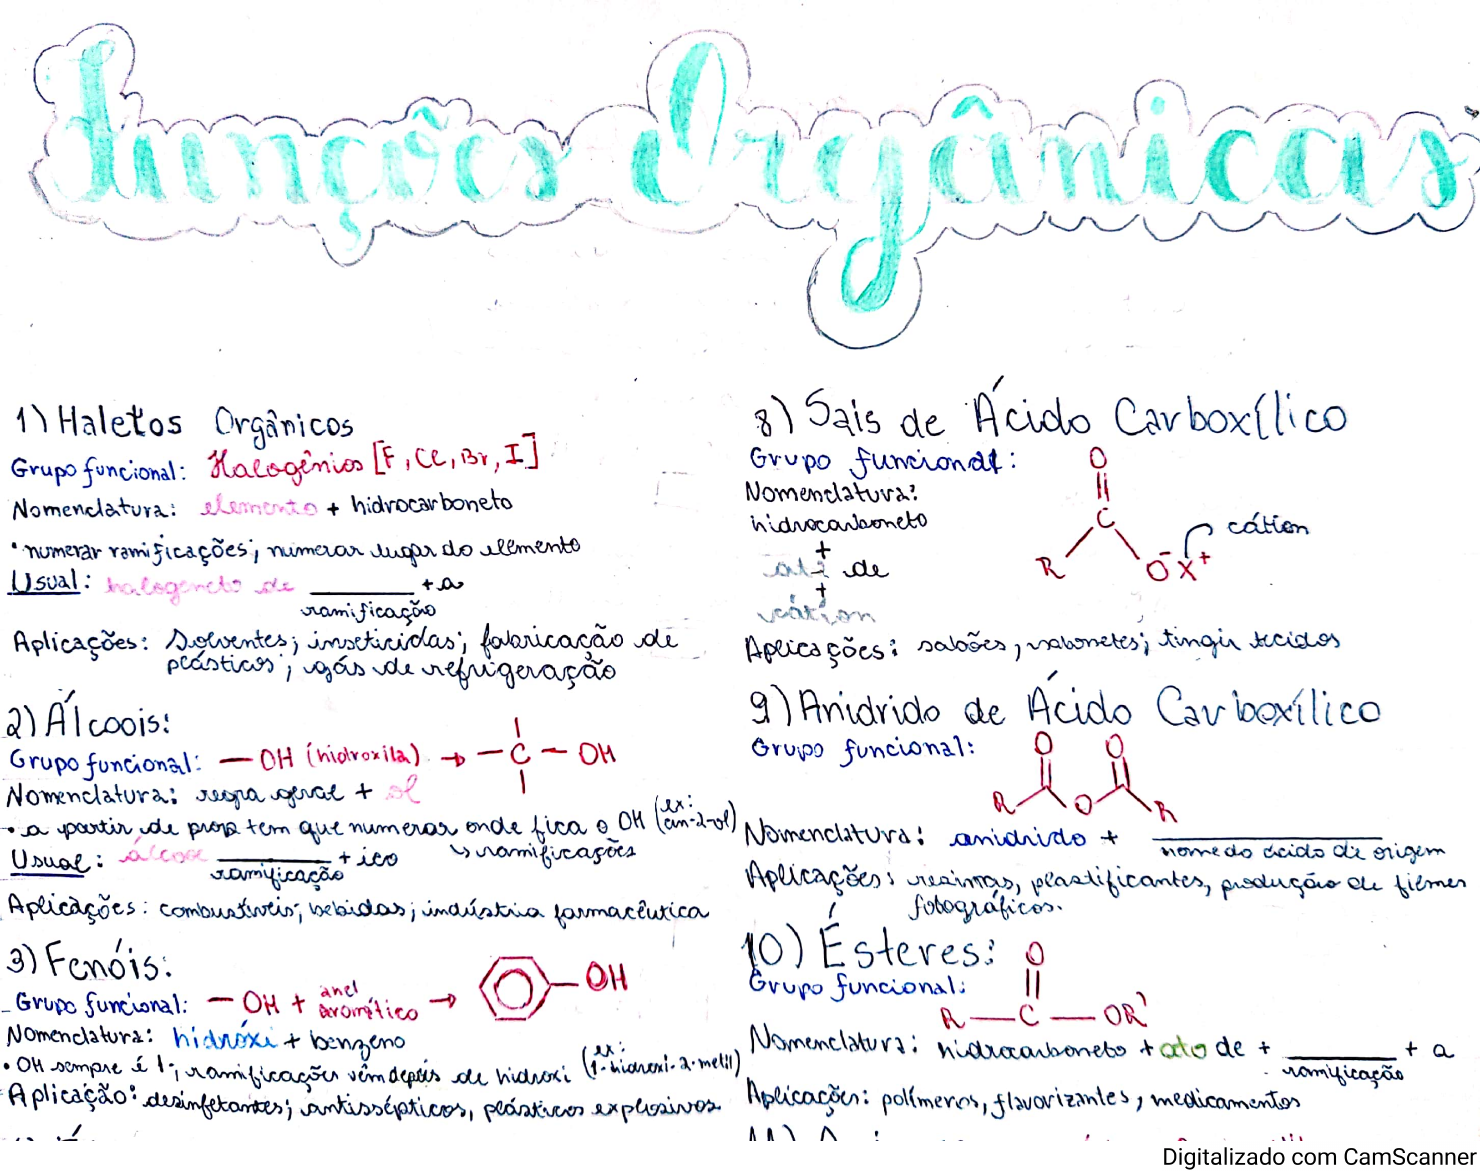 Funções Orgânicas
1) Haletos Orgânicos
Grupo funcional: Halogênios [F, Cl, Br, I]
Nomenclatura: elemento + hidrocarboneto
• numerar ramificações; numerar lugar do elemento
Usual: halogeneto de ______ + a
ramificação
Aplicações: Solventes; inseticidas; fabricação de
plásticos; gás de refrigeração
2) Álcoois:
Grupo funcional: — OH (hidroxila) → — C — OH
Nomenclatura: regra geral + ol
• a partir de prop tem que numerar onde fica o OH (ex:
-2-ol)
↳ ramificações
Usual: álcool ______ + ico
ramificação
Aplicações: combustíveis; bebidas; indústria farmacêutica
3) Fenóis:
Grupo funcional: — OH + anel
aromático → OH
Nomenclatura: hidróxi + benzeno
• OH sempre é 1; ramificações vêm depois de hidroxi (ex:
1-hidroxi-2-metil)
Aplicação: desinfetantes; antissépticos, plásticos explosivos
8) Sais de Ácido Carboxílico
Grupo funcional:
O
C
R O⁻ X⁺ cátion
Nomenclatura:
hidrocarboneto
+
de
+
cátion
Aplicações: sabões, sabonetes; tingir tecidos
9) Anidrido de Ácido Carboxílico
Grupo funcional:
O O
R O R
Nomenclatura: anidrido + ______
nome do ácido de origem
Aplicações: resinas, plastificantes, produção de filmes
fotográficos.
10) Ésteres:
Grupo funcional:
O
R — C — OR'
Nomenclatura: hidrocarboneto + ato de + ______ + a
ramificação
Aplicações: polímeros, flavorizantes, medicamentos
Digitalizado com CamScanner